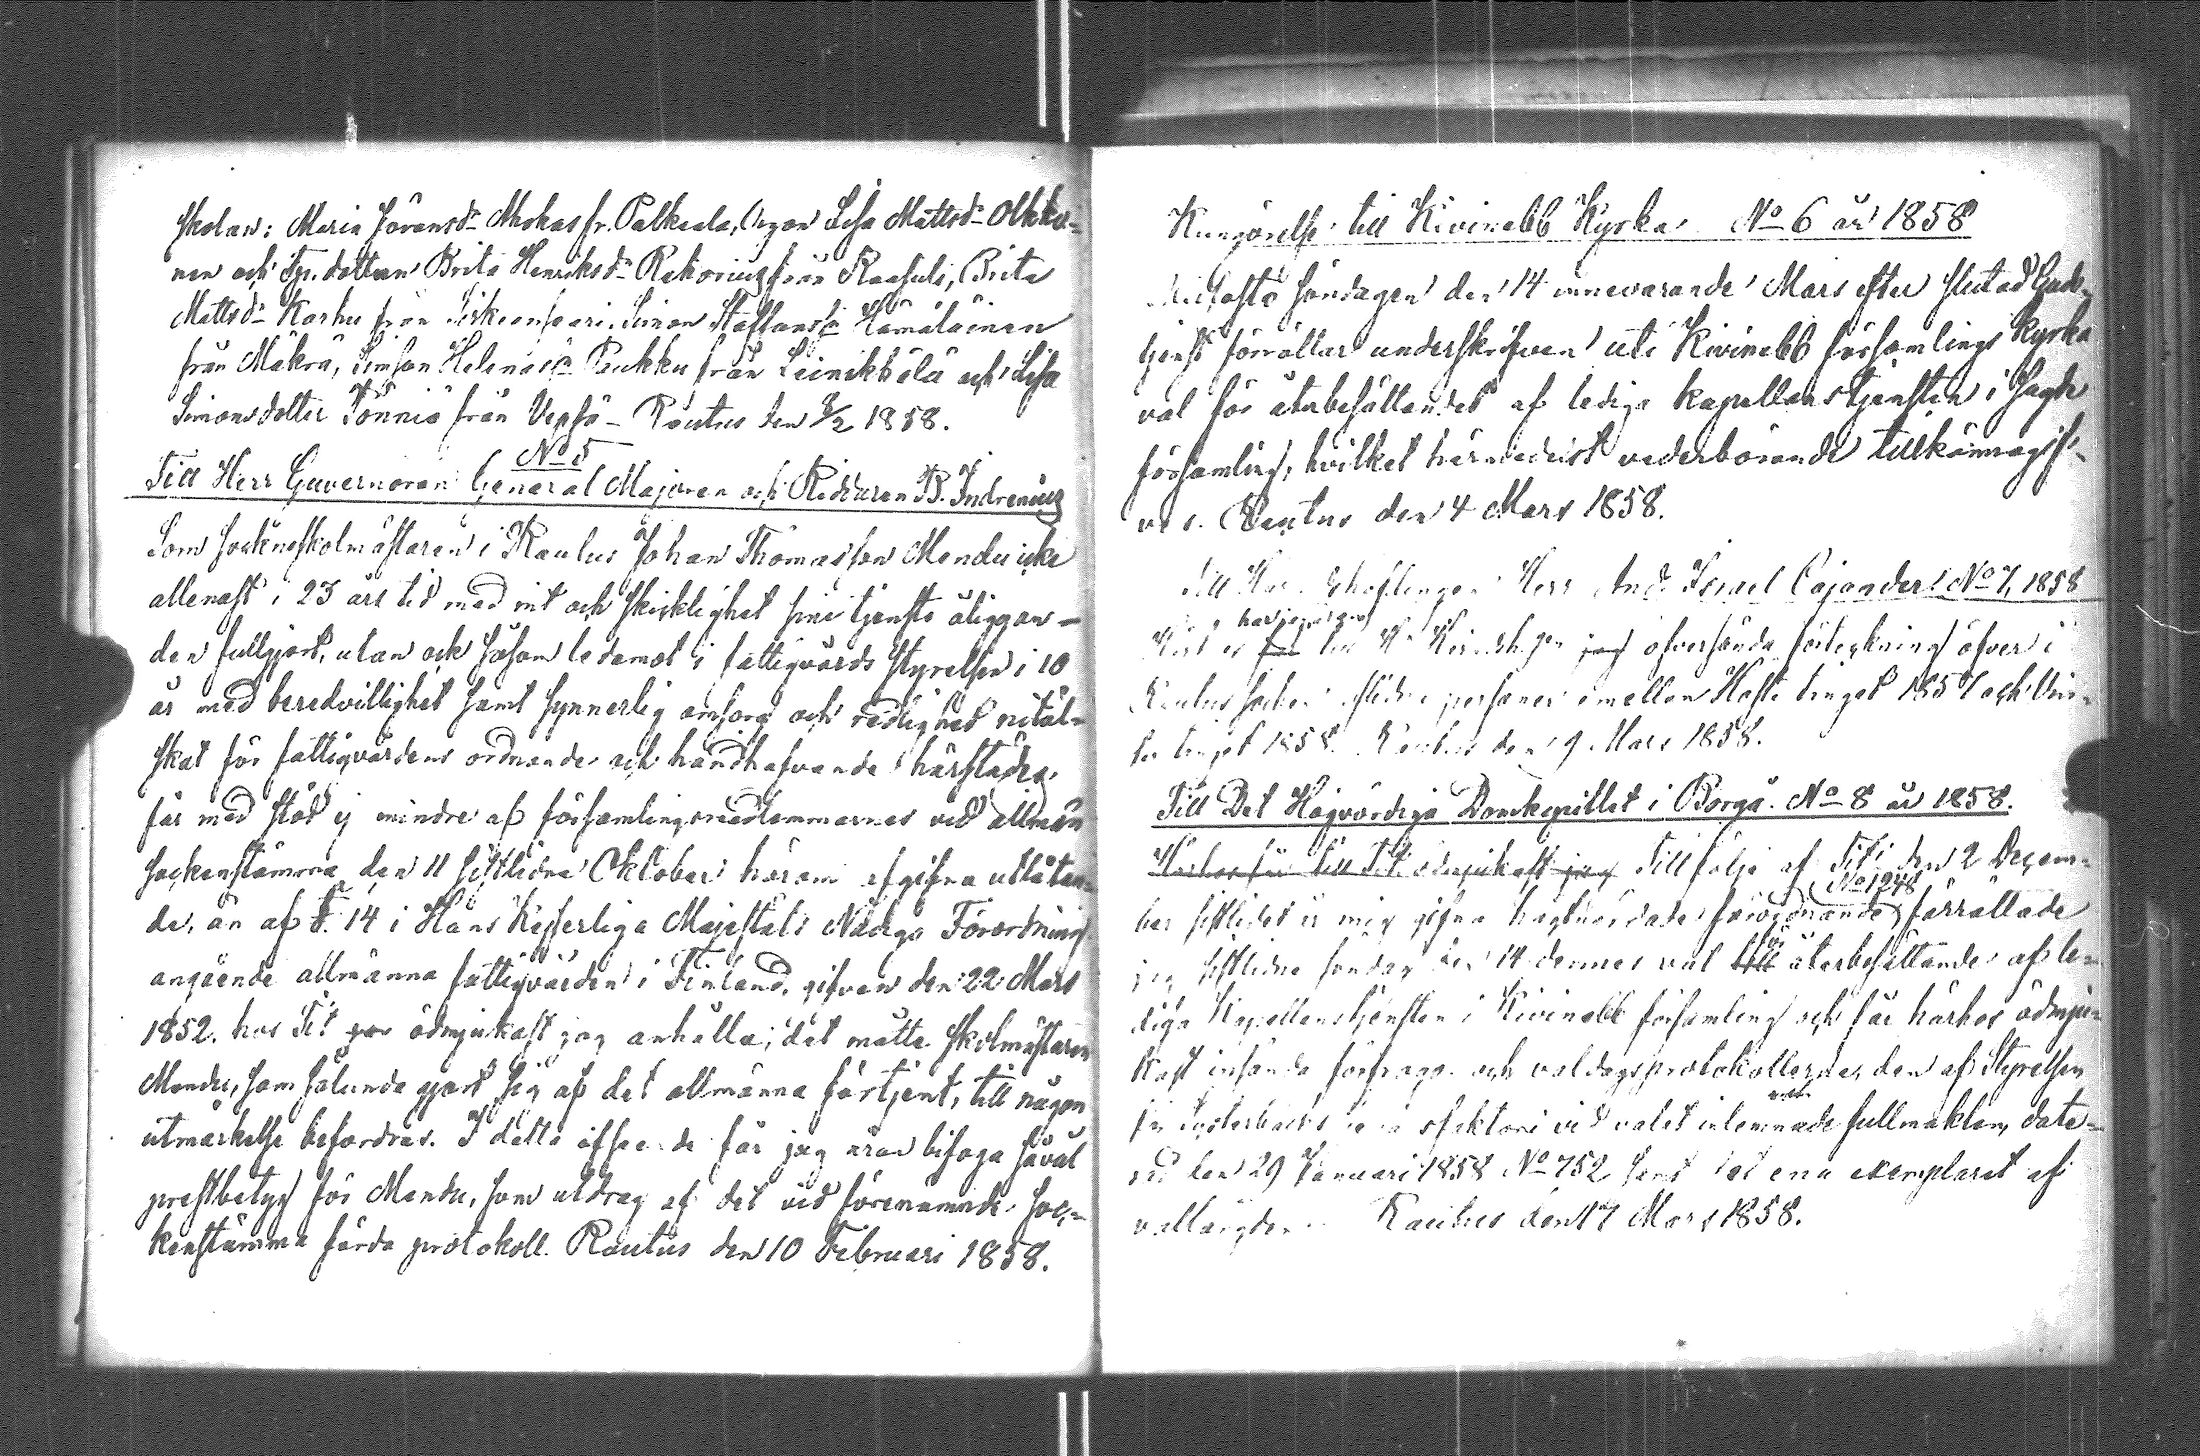 skolan: Maria Göransdr Mskas fr. Palkeala, Lisa Mattsdr Olkko-
nen och dottern Brita Henriksdr Rakorius från Raasuli, Brita
Mattsdr Karhu från Simon Staffanss. Hämäläinen
från Mäkrä, Simson Helenas Pukku från Leinikkälä och Lisa
Simonsdotter Tönniö från Vepsä - Rautus den 8/2 1858.
No 5
Till Herr Guvernören General Majoren och Riddaren B. Indrenius
Som sockneskolmästaren i Rautus Johan Thomasson Mendu icke
allenast i 23 års tid med nit och skicklighet sine tjenste åliggan-
den fullgjort, utan ock såsom ledamot i fattigvårds styrelsen i 10
år med beredvillighet samt synnerlig omsorg och redlighet nitäl-
skat för fattigvårdens ordnande och handhafvande härstädes;
får med stöd ej mindre af församlingsmedlemmarnes vid allmän
sockenstämma den 11 sistlidne Oktober härom afgifna utlåtan-
de, än af §. 14 i Hans Kejserliga Majestäts Nådiga Förordning
angående allmänna fattigvården i Finland, gifven den 22 Mars
1852, hos Tit ödmjukast jag anhålla; det måtte skolmästaren
Mendu, som sålunda gjort sig af det allmänna förtjent, till någon
utmärkelse befordras. I detta afseende får jag äran bifoga såväl
prestbetyg för Mendu, som utdrag af det vid förenämnde soc-
kenstämma förda protokoll. Rautus den 10 Februari 1858.
Kungörelse till Kivinebb Kyrka No 6 år 1858
söndagen den 14 innevarande Mars efter slutad Guds-
tjenst förrättar underskrifven uti Kivinebb församlings kyrka
val för återbesättandet af lediga kapellanstjensten i sagde
församling, hvilket härmedelst vederbörande tillkännagif-
ves. Rautus den 4 Mars 1858.
Till Herr Israel Cajander No 7, 1858
öfversända förteckning öfver i
Rautus socken personer emellan Höste tinget 1857 och Vin-
ter tinget 1858. Rautus den 9 Mars 1858.
Till Det Högvördiga Domkapitlet i Borgå. No 8 år 1858.
Till följe af Tit: den 2 Decem-
ber sistlidet år mig gifna högtvördade förordnande No 1248 förrättade
jag sistlidne söndag den 14 dennes val för återbesättande af le-
diga Kapellanstjensten i Kivinebb församling och får härhos ödmju-
kast insända förfrage- och valdagsprotokollerne, den af Styrelsen
för Systerbäcks vid valet inlemnade fullmakten, date-
rad den 29 Januari 1858 No 752 samt det ena exemplaret af
vallängden. Rautus den 17 Mars 1858.